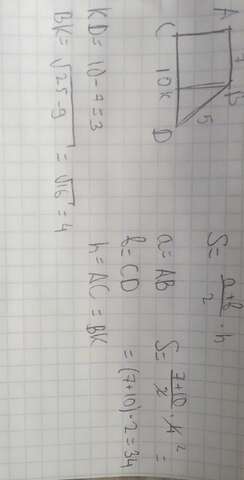 A 7 B
5
C 10 K D
KD = 10 - 7 = 3
BK = √25 - 9 = √16 = 4
S = a+b/2 · h
a = AB S = 7+10/2 · 4 2 =
b = CD = (7+10) · 2 = 34
h = AC = BK